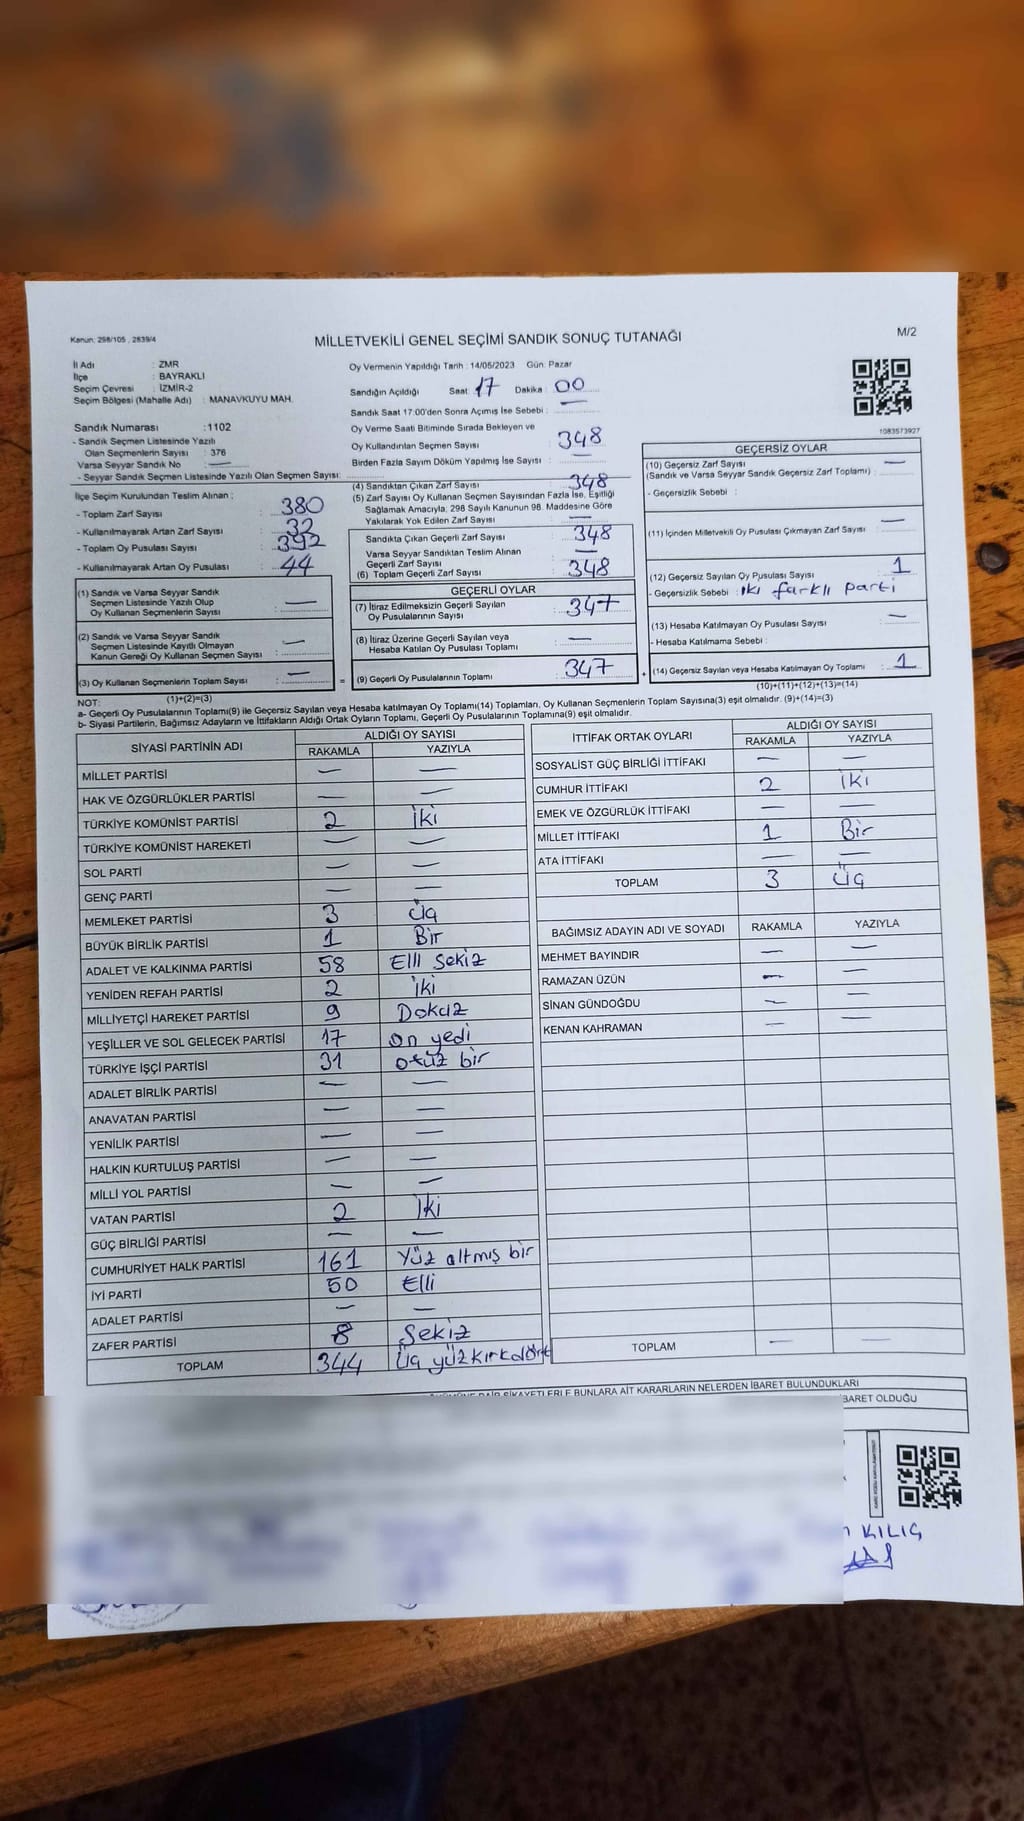 Kanun: 298/105 , 2839/4
MİLLETVEKİLİ GENEL SEÇİMİ SANDIK SONUÇ TUTANAĞI
M/2
İl Adı : ZMR
İlçe : BAYRAKLI
Seçim Çevresi : İZMİR-2
Seçim Bölgesi (Mahalle Adı) : MANAVKUYU MAH.
Oy Vermenin Yapıldığı Tarih : 14/05/2023 Gün: Pazar
Sandığın Açıldığı Saat: 17 Dakika : 00
Sandık Saat 17:00'den Sonra Açımış İse Sebebi : —
Sandık Numarası :1102
- Sandık Seçmen Listesinde Yazılı
Olan Seçmenlerin Sayısı : 376
Varsa Seyyar Sandık No : —
- Seyyar Sandık Seçmen Listesinde Yazılı Olan Seçmen Sayısı:
Oy Verme Saati Bitiminde Sırada Bekleyen ve
Oy Kullandırılan Seçmen Sayısı : 348
Birden Fazla Sayım Döküm Yapılmış İse Sayısı : —
1083573927
İlçe Seçim Kurulundan Teslim Alınan :
- Toplam Zarf Sayısı : 380
- Kullanılmayarak Artan Zarf Sayısı : 32
- Toplam Oy Pusulası Sayısı : 392
- Kullanılmayarak Artan Oy Pusulası : 44
(1) Sandık ve Varsa Seyyar Sandık
Seçmen Listesinde Yazılı Olup
Oy Kullanan Seçmenlerin Sayısı : —
(2) Sandık ve Varsa Seyyar Sandık
Seçmen Listesinde Kayıtlı Olmayan
Kanun Gereği Oy Kullanan Seçmen Sayısı : —
(3) Oy Kullanan Seçmenlerin Toplam Sayısı : —
(1)+(2)=(3)
(4) Sandıktan Çıkan Zarf Sayısı : 348
(5) Zarf Sayısı Oy Kullanan Seçmen Sayısından Fazla İse, Eşitliği
Sağlamak Amacıyla, 298 Sayılı Kanunun 98. Maddesine Göre
Yakılarak Yok Edilen Zarf Sayısı : —
Sandıkta Çıkan Geçerli Zarf Sayısı : 348
Varsa Seyyar Sandıktan Teslim Alınan
Geçerli Zarf Sayısı : —
(6) Toplam Geçerli Zarf Sayısı : 348
GEÇERLİ OYLAR
(7) İtiraz Edilmeksizin Geçerli Sayılan
Oy Pusulalarının Sayısı : 347
(8) İtiraz Üzerine Geçerli Sayılan veya
Hesaba Katılan Oy Pusulası Toplamı : —
= (9) Geçerli Oy Pusulalarının Toplamı : 347
GEÇERSİZ OYLAR
(10) Geçersiz Zarf Sayısı : —
(Sandık ve Varsa Seyyar Sandık Geçersiz Zarf Toplamı)
- Geçersizlik Sebebi :
(11) İçinden Milletvekili Oy Pusulası Çıkmayan Zarf Sayısı : —
(12) Geçersiz Sayılan Oy Pusulası Sayısı : 1
- Geçersizlik Sebebi : iki farklı parti
(13) Hesaba Katılmayan Oy Pusulası Sayısı : —
- Hesaba Katılmama Sebebi :
+ (14) Geçersiz Sayılan veya Hesaba Katılmayan Oy Toplamı : 1
(10)+(11)+(12)+(13)=(14)
NOT:
a- Geçerli Oy Pusulalarının Toplamı(9) ile Geçersiz Sayılan veya Hesaba Katılmayan Oy Toplamı(14) Toplamları, Oy Kullanan Seçmenlerin Toplam Sayısına(3) eşit olmalıdır. (9)+(14)=(3)
b- Siyasi Partilerin, Bağımsız Adayların ve İttifakların Aldığı Ortak Oyların Toplamı, Geçerli Oy Pusulalarının Toplamına(9) eşit olmalıdır.
SİYASİ PARTİNİN ADI ALDIĞI OY SAYISI
RAKAMLA YAZIYLA
MİLLET PARTİSİ — —
HAK VE ÖZGÜRLÜKLER PARTİSİ — —
TÜRKİYE KOMÜNİST PARTİSİ 2 İki
TÜRKİYE KOMÜNİST HAREKETİ — —
SOL PARTİ — —
GENÇ PARTİ — —
MEMLEKET PARTİSİ 3 Üç
BÜYÜK BİRLİK PARTİSİ 1 Bir
ADALET VE KALKINMA PARTİSİ 58 Elli Sekiz
YENİDEN REFAH PARTİSİ 2 İki
MİLLİYETÇİ HAREKET PARTİSİ 9 Dokuz
YEŞİLLER VE SOL GELECEK PARTİSİ 17 On yedi
TÜRKİYE İŞÇİ PARTİSİ 31 otuz bir
ADALET BİRLİK PARTİSİ — —
ANAVATAN PARTİSİ — —
YENİLİK PARTİSİ — —
HALKIN KURTULUŞ PARTİSİ — —
MİLLİ YOL PARTİSİ — —
VATAN PARTİSİ 2 İki
GÜÇ BİRLİĞİ PARTİSİ — —
CUMHURİYET HALK PARTİSİ 161 Yüz altmış bir
İYİ PARTİ 50 Elli
ADALET PARTİSİ — —
ZAFER PARTİSİ 8 Sekiz
TOPLAM 344 Üç yüz kırk dört
İTTİFAK ORTAK OYLARI ALDIĞI OY SAYISI
RAKAMLA YAZIYLA
SOSYALİST GÜÇ BİRLİĞİ İTTİFAKI — —
CUMHUR İTTİFAKI 2 İki
EMEK VE ÖZGÜRLÜK İTTİFAKI — —
MİLLET İTTİFAKI 1 Bir
ATA İTTİFAKI — —
TOPLAM 3 Üç
BAĞIMSIZ ADAYIN ADI VE SOYADI RAKAMLA YAZIYLA
MEHMET BAYINDIR — —
RAMAZAN ÜZÜN — —
SİNAN GÜNDOĞDU — —
KENAN KAHRAMAN — —
TOPLAM — —
ŞİKAYETLERLE BUNLARA AİT KARARLARIN NELERDEN İBARET BULUNDUKLARI
İBARET OLDUĞU
KILIÇ